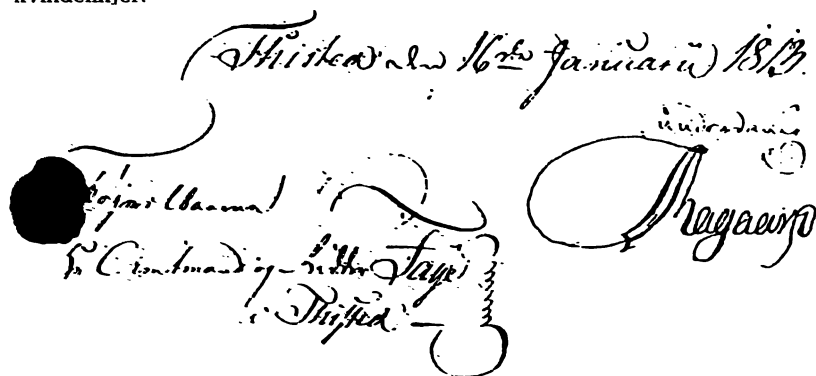 Thisted den 16de Januarii 1813.
underdanig
Thagaard
Høivelbaarne
Hr Amtmand og Ridder Faye
i Thisted.